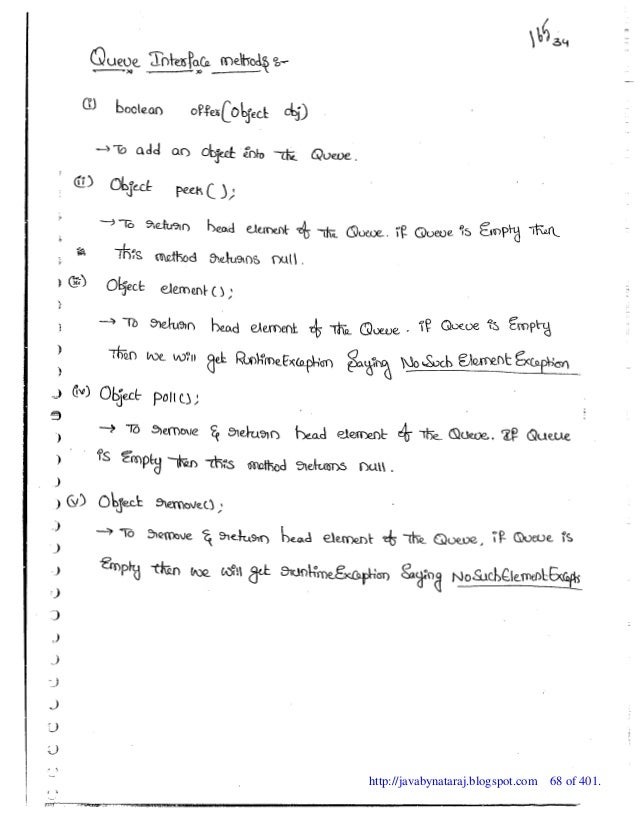 165 34
Queue Interface methods :-
(i) boolean offer(Object obj)
→ To add an object into the Queue.
(ii) Object peek();
→ To return head element of the Queue. if Queue is Empty then
this method returns null.
(iii) Object element();
→ To return head element of the Queue. if Queue is Empty
Then we will get RuntimeException Saying NoSuchElementException
(iv) Object poll();
→ To remove & return head element of the Queue. If Queue
is Empty then this method returns null.
(v) Object remove();
→ To remove & return head element of the Queue, if Queue is
Empty then we will get runtimeException Saying NoSuchElementExcept
http://javabynataraj.blogspot.com 68 of 401.